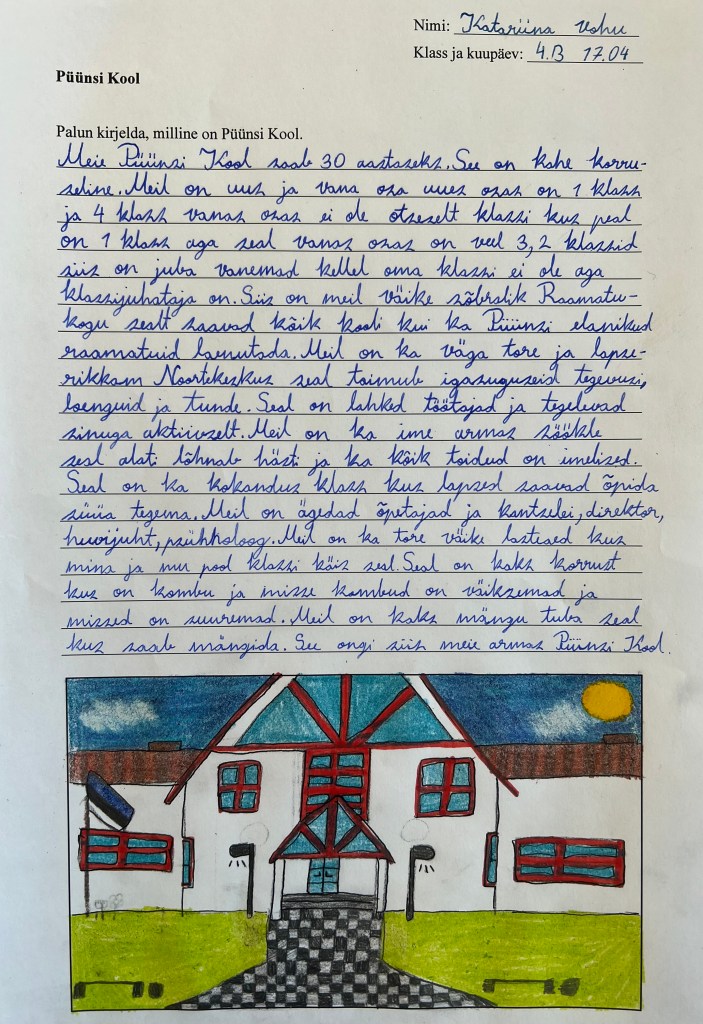 Nimi: Katariina Vohu
Klass ja kuupäev: 4.B 17.04
Püünsi Kool
Palun kirjelda, milline on Püünsi Kool.
Meie Püünsi Kool saab 30 aastaseks. See on kahe korru-
seline. Meil on uus ja vana osa uues osas on 1 klass
ja 4 klass vanas osas ei ole otseselt klassi kus peal
on 1 klass aga seal vanas osas on veel 3, 2 klassid
siis on juba vanemad kellel oma klassi ei ole aga
klassijuhataja on. Siis on meil väike sõbralik Raamatu-
kogu sealt saavad kõik kooli kui ka Püünsi elanikud
raamatuid laenutada. Meil on ka väga tore ja lapse-
rikkam Noortekeskus seal toimub igasuguseid tegevusi,
loenguid ja tunde. Seal on lahked töötajad ja tegelevad
sinuga aktiivselt. Meil on ka ime armas söökla
seal alati lõhnab hästi ja ka kõik toidud on imelised.
Seal on ka kokandus klass kus lapsed saavad õpida
süüa tegema. Meil on ägedad õpetajad ja kantselei, direktor,
huvijuht, psühholoog. Meil on ka tore väike lasteaed kus
mina ja mu pool klassi käis seal. Seal on kaks korrust
kus on kombu ja misse kombud on väiksemad ja
missed on suuremad. Meil on kaks mängu tuba seal
kus saab mängida. See ongi siis meie armas Püünsi Kool.